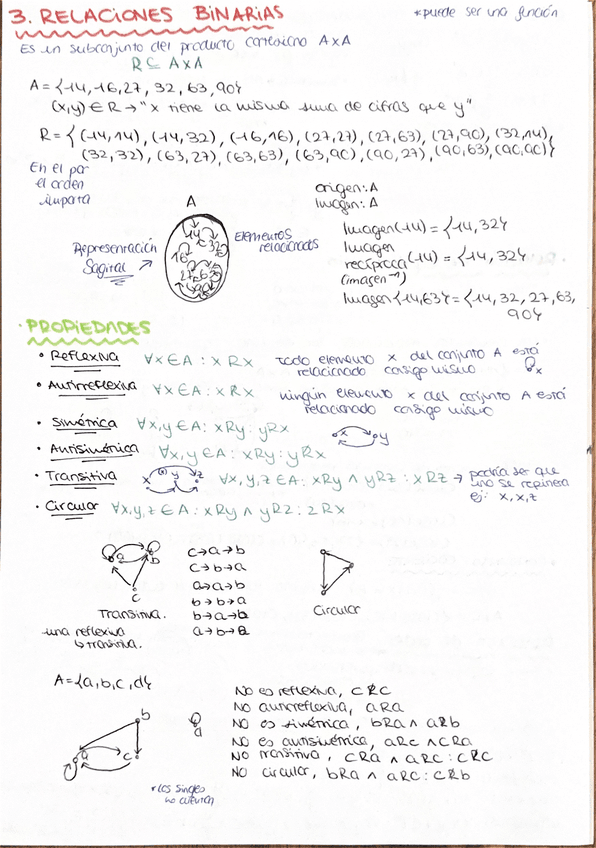 3. RELACIONES BINARIAS
*puede ser una función
Es un subconjunto del producto cartesiano AxA
R ⊆ AxA
A = {14, 16, 27, 32, 63, 90}
(x,y) ∈ R → "x tiene la misma suma de cifras que y"
R = { (14,14), (14,32), (16,16), (27,27), (27,63), (27,90), (32,14),
(32,32), (63,27), (63,63), (63,90), (90,27), (90,63), (90,90)}
En el par
el orden
importa
origen: A
Imagen: A
A
Representación
Sagital
Elementos
relacionados
14
32
16
27
63
90
Imagen(14) = {14, 32}
Imagen
recíproca (14) = {14, 32}
(imagen⁻¹)
Imagen {14,63} = {14, 32, 27, 63,
90}
· PROPIEDADES
• Reflexiva ∀x∈A : xRx todo elemento x del conjunto A está
relacionado consigo mismo
x
• Antirreflexiva ∀x∈A : xR̸x ningún elemento x del conjunto A está
relacionado consigo mismo
• Simétrica ∀x,y∈A : xRy : yRx
x y
• Antisimétrica ∀x,y∈A : xRy : yR̸x
• Transitiva x y z ∀x,y,z∈A : xRy ∧ yRz : xRz → podría ser que
uno se repitiera
ej: x, x, z
• Circular ∀x,y,z∈A : xRy ∧ yRz : zRx
a b
c
Transitiva.
una reflexiva
↳ transitiva.
c→a→b
c→b→a
a→a→b
b→b→a
b→a→b
a→b→a
Circular
A={a,b,c,d}
b
a c
D
*los singles
no cuentan
No es reflexiva, cR̸c
No antirreflexiva, aRa
No es simétrica, bRa ∧ aR̸b
No es antisimétrica, aRc ∧ cRa
No transitiva, cRa ∧ aRc : cR̸c
No circular, bRa ∧ aRc : cR̸b